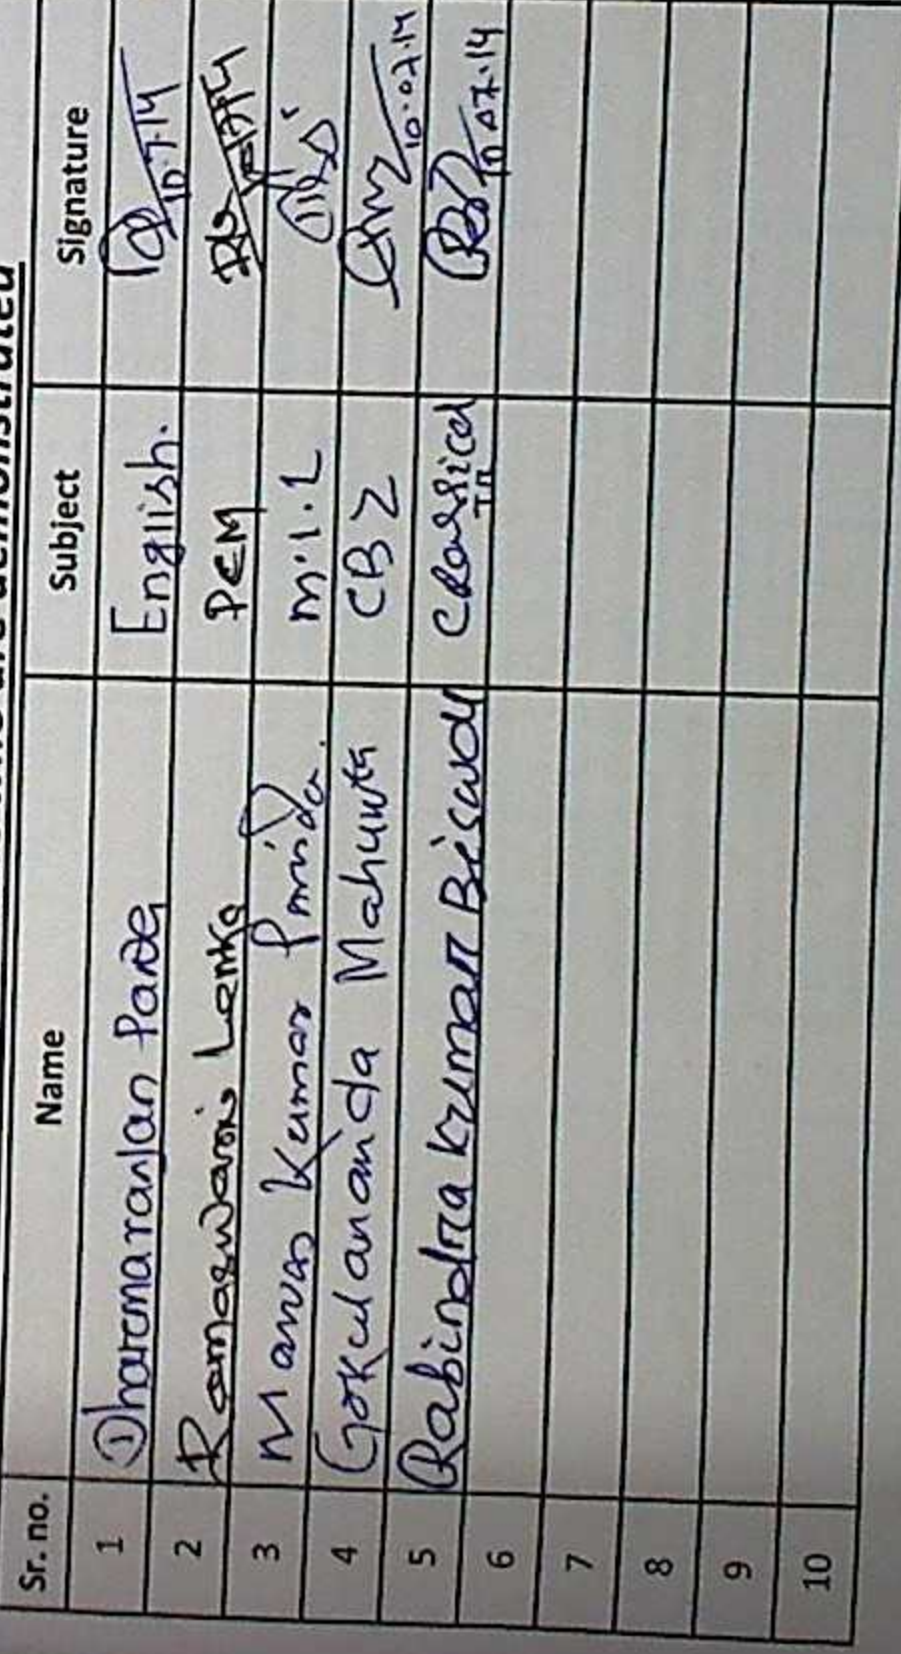 demonstrated
Sr. no. Name Subject Signature
1 Dharmaranjan Panda English. 10.7.14
2 Ramaswami Lenka PCM
3 Manas Kumar Parida. M.I.L
4 Gokulananda Mahunta CBZ 10.07.14
5 Rabindra Kumar Biswal Classical 10.07.14
6
7
8
9
10